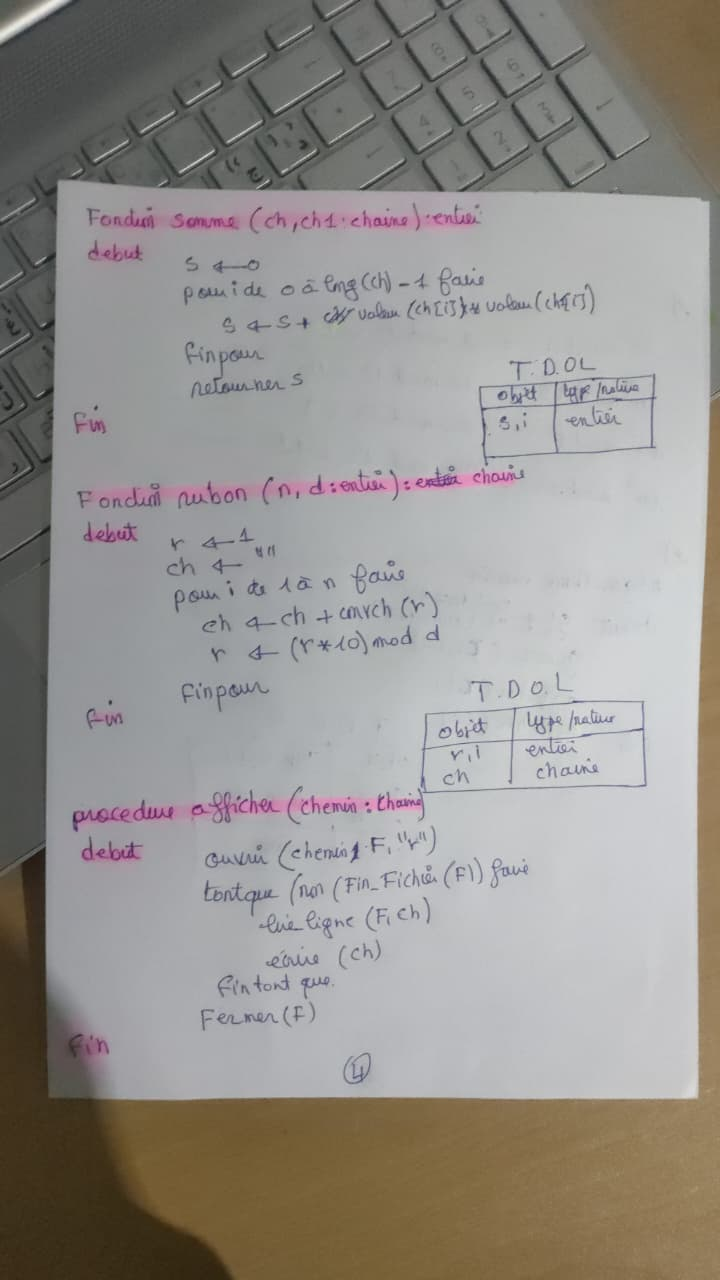 Fonction somme (ch, ch1: chaine): entier
debut
s ← 0
pour i de 0 à long(ch) - 1 faire
s ← s + valeur (ch[i]) * valeur (ch1[i])
Finpour
retourner s
Fin
T.D.O.L
objet type/nature
s,i entier
Fonction rubon (n, d: entier): chaine
debut
r ← 1
ch ← ""
pour i de 1 à n faire
ch ← ch + convch (r)
r ← (r * 10) mod d
Finpour
Fin
T.D.O.L
objet type/nature
r,i entier
ch chaine
procedure afficher (chemin: chaine)
debut
ouvrir (chemin, F, "r")
tantque (non (Fin_Fichier (F)) faire
lire ligne (F, ch)
écrire (ch)
Fin tant que.
Fermer (F)
Fin
4